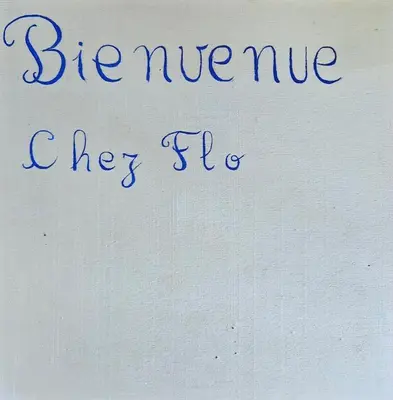 Bienvenue
Chez Flo